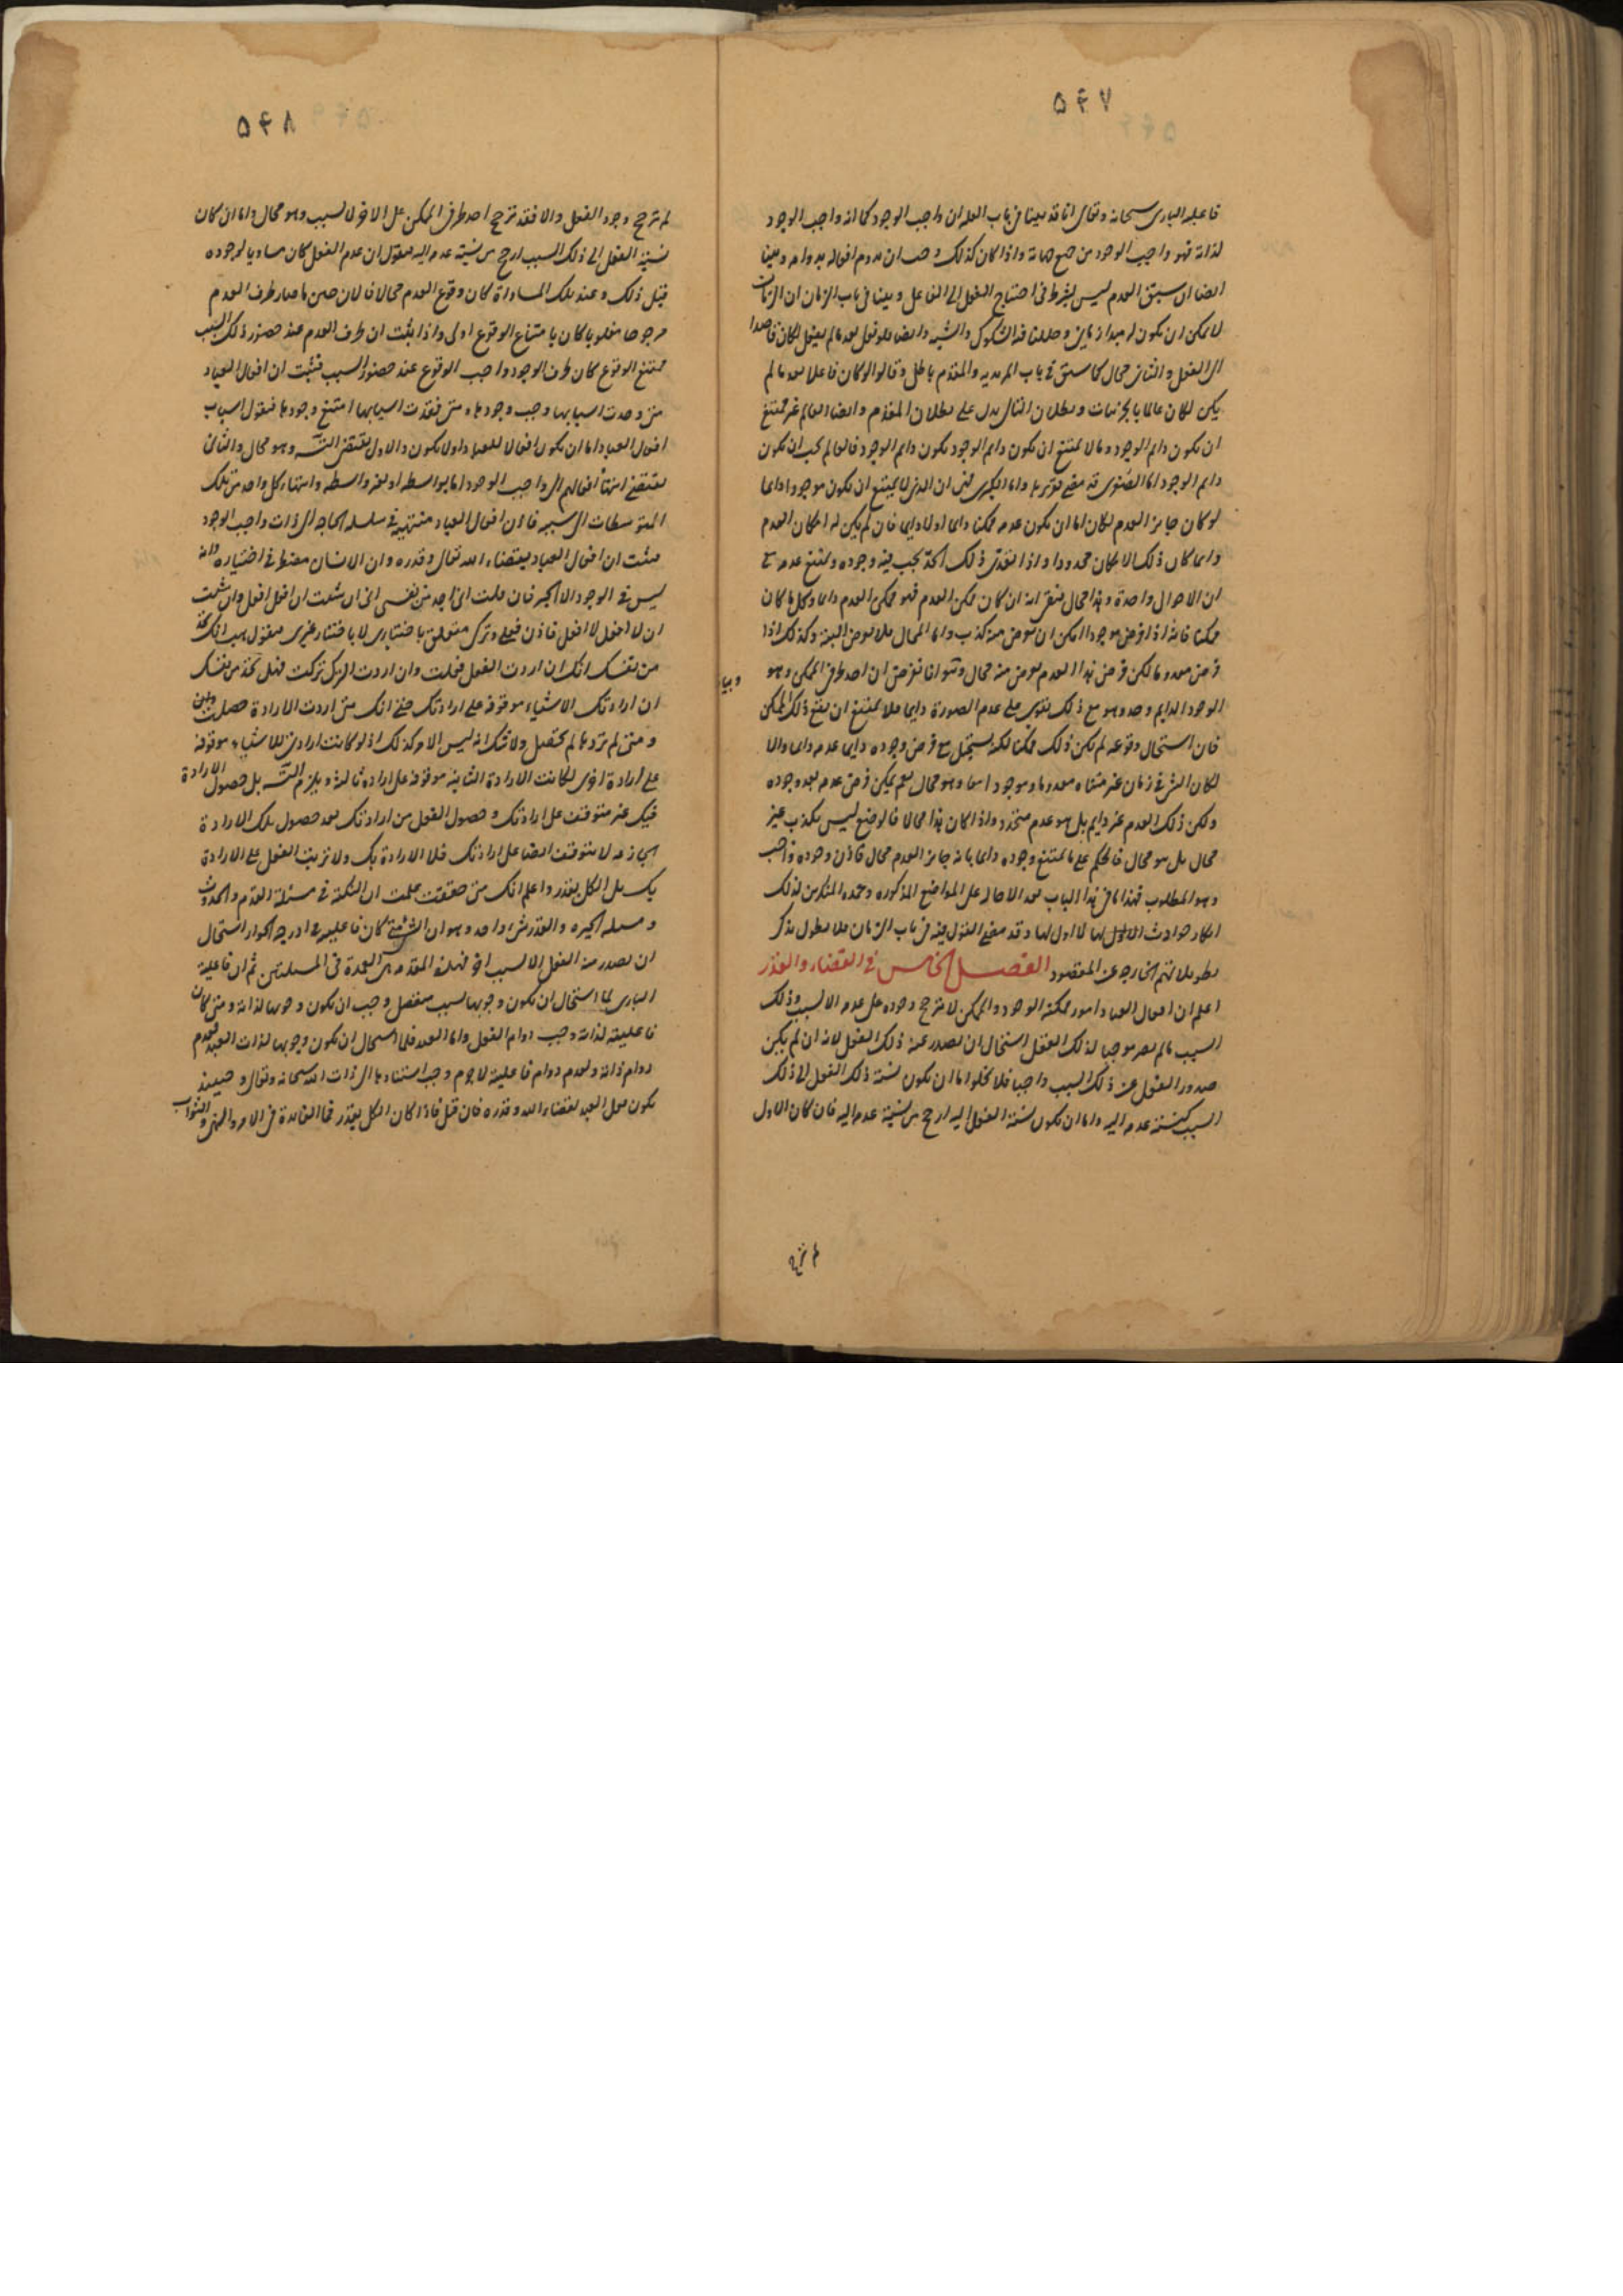 ۵۴۷
فاعلية البارى سبحانه وتعالى انا قد بينا فى باب العلة ان واجب الوجود كما انه واجب الوجود
لذاته فهو واجب الوجود من جميع جهاته واذا كان كذلك وجب ان يدوم افعاله بدوامه وبينا
ايضا ان سبق العدم ليس بشرط فى احتياج الفعل الى الفاعل وبينا فى باب الزمان ان الزمان
لا يمكن ان يكون له مبدا زمانى وحللنا فيه الشكوك والشبه وايضا فلو فعل بعد ما لم يفعل لكان قاصدا
الى الفعل والتالى محال كما سبق فى باب المريدية والمقدم باطل وقالوا لو كان فاعلا بعد ما لم
يكن لكان عالما بالجزئيات وبطلان التالى يدل على بطلان المقدم وايضا العالم غير ممتنع
ان يكون دايم الوجود وما لا يمتنع ان يكون دايم الوجود يكون دايم الوجود فالعالم يجب ان يكون
دايم الوجود اما الصغرى قد مضى تقريرها واما الكبرى فهى ان الذى لا يمتنع ان يكون موجودا دايما
لو كان جايز العدم لكان اما ان يكون عدمه ممكنا دايما او لا دايما فان لم يكن له امكان العدم
دايما كان ذلك الامكان محدودا واذا تعدى ذلك الحد يجب فيه وجوده ويمتنع عدمه مع
ان الاحوال واحدة وهذا محال فبقى انه ان كان ممكن العدم فهو ممكن العدم دايما وكل ما كان
ممكنا فانه اذا فرض موجودا امكن ان يعرض منه كذب واما المحال فلا يعرض البتة وكذلك اذا
فرض معدوما لكن فرض هذا العدم يعرض منه محال وهو انا نفرض ان احد طرفى الممكن وهو
الوجود الدايم وحده وهو مع ذلك يقوى على عدم الصورة دايما فلا يمتنع ان يقع ذلك الممكن
فان استحال وقوعه لم يكن ذلك ممكنا لكنه يستحيل مع فرض وجوده دايما عدمه دايما والا
لكان الشى فى زمان غير متناه معدوما وموجودا معا وهو محال نعم يمكن فرض عدمه بعد وجوده
ولكن ذلك العدم غير دايم بل هو عدم متجدد واذا كان هذا محالا فالوضع ليس بكذب غير
محال بل هو محال فالحكم على ما يمتنع وجوده دايما بانه جايز العدم محال فاذن وجوده واجب
وهو المطلوب فهذا ما فى هذا الباب بعد الاحالة على المواضع المذكورة وعمدة المنكرين لذلك
انكار حوادث لا اول لها وقد مضى القول فيه فى باب الزمان فلا نطول بذكر
تطويلاتهم الخارجة عن المقصود الفصل الخامس فى القضاء والقدر
اعلم ان افعال العباد امور ممكنة الوجود والممكن لا يترجح وجوده على عدمه الا لسبب وذلك
السبب ما لم يصر موجبا لذلك الفعل استحال ان يصدر عنه ذلك الفعل لانه ان لم يكن
صدور الفعل عن ذلك السبب واجبا فلا يخلوا اما ان يكون نسبة ذلك الفعل الى ذلك
السبب كنسبة عدمه اليه واما ان يكون نسبة الفعل اليه ارجح من نسبة عدمه اليه فان كان الاول
لم يترجح
۵۴۸
لم يترجح وجود الفعل والا فقد ترجح احد طرفى الممكن على الاخر لا لسبب وهو محال واما ان كان
نسبة الفعل الى ذلك السبب ارجح من نسبة عدمه اليه فنقول ان عدم الفعل كان مساويا لوجوده
قبل ذلك وعند تلك المساواة كان وقوع العدم محالا فالان حين ما صار طرف العدم
مرجوحا مغلوبا كان بامتناع الوقوع اولى واذا ثبت ان طرف العدم عند حضور ذلك السبب
ممتنع الوقوع كان طرف الوجود واجب الوقوع عند حضور السبب فثبت ان افعال العباد
متى وجدت اسبابها وجب وجودها ومتى فقدت اسبابها امتنع وجودها فنقول اسباب
افعال العباد اما ان يكون افعالا للعباد او لا يكون والاول يقتضى التسـ وهو محال والثانى
يقتضى انتهاء افعالهم الى واجب الوجود اما بواسطة او بغير واسطة وانتهاء كل واحد من تلك
المتوسطات الى سببه فاذن افعال العباد منتهية فى سلسلة الحاجة الى ذات واجب الوجود
فثبت ان افعال العباد بقضاء الله تعالى وقدره وان الانسان مضطر فى اختياره وانه
ليس فى الوجود الا الجبر فان قلت انى اجد من نفسى انى ان شئت ان افعل افعل وان شئت
ان لا افعل لا افعل فاذن فعلى وتركى متعلق باختيارى لا باختيار غيرى فنقول هب انك تجد
من نفسك انك ان اردت الفعل فعلت وان اردت الترك تركت فهل تجد من نفسك
ان ارادتك الاشياء موقوفة على ارادتك حتى انك متى اردت الارادة حصلت
ومتى لم تردها لم تحصل ولا شك انه ليس الامر كذلك اذ لو كانت ارادتى للاشياء موقوفة
على ارادة اخرى لكانت الارادة الثانية موقوفة على ارادة ثالثة ويلزم التسـ بل حصول الارادة
فيك غير متوقف على ارادتك وحصول الفعل من ارادتك بعد حصول تلك الارادة
الجازمة لا يتوقف ايضا على ارادتك فلا الارادة بك ولا ترتب الفعل على الارادة
بك بل الكل بقدر واعلم انك متى حققت علمت ان النكتة فى مسئلة القدم والحدوث
ومسئلة الجبر والقدر شى واحد وهو ان الشى متى كان فاعليته فى درجة الجواز استحال
ان يصدر منه الفعل الا لسبب اخر فهذه المقدمة هى العمدة فى المسئلتين ثم ان فاعلية
البارى لما استحال ان يكون وجوبها لسبب منفصل وجب ان يكون وجوبها لذاته ومتى كان
فاعليته لذاته وجب دوام الفعل واما العبد فلما استحال ان يكون وجوبها لذات العبد لعدم
دوام ذاته ولعدم دوام فاعليته لا جرم وجب استنادها الى ذات الله سبحانه وتعالى وحينئذ
يكون فعل العبد بقضاء الله وقدره فان قيل فاذا كان الكل بقدر فما الفائدة فى الامر والنهى والثواب